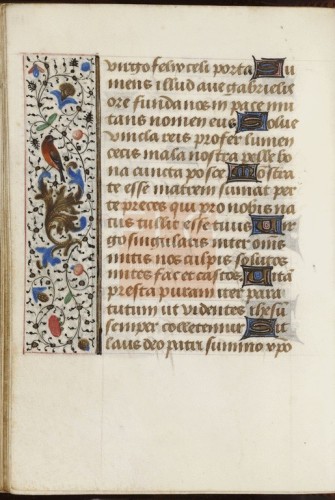 virgo felix celi porta Su
mens illud ave gabrielis
ore funda nos in pace mu
tans nomen eve Solve
vincla reis profer lumen
cecis mala nostra pelle bo
na cuncta posce Monstra
te esse matrem sumat per
te preces qui pro nobis na
tus tulit esse tuus Vir
go singularis inter omnis
mitis nos culpis solutos
mites fac et castos Vitam
presta puram iter para
tutum ut videntes ihesum
semper colletemur Sit
laus deo patri summo xpo